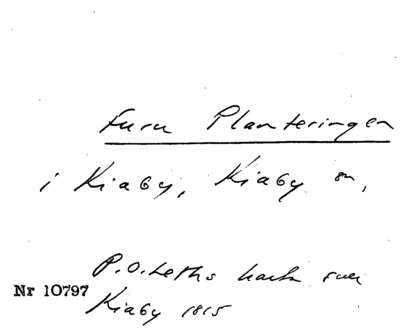 Furu Planteringen
i Kiaby, Kiaby sn,
P.O. Leths karta över
Nr 10797
Kiaby 1815